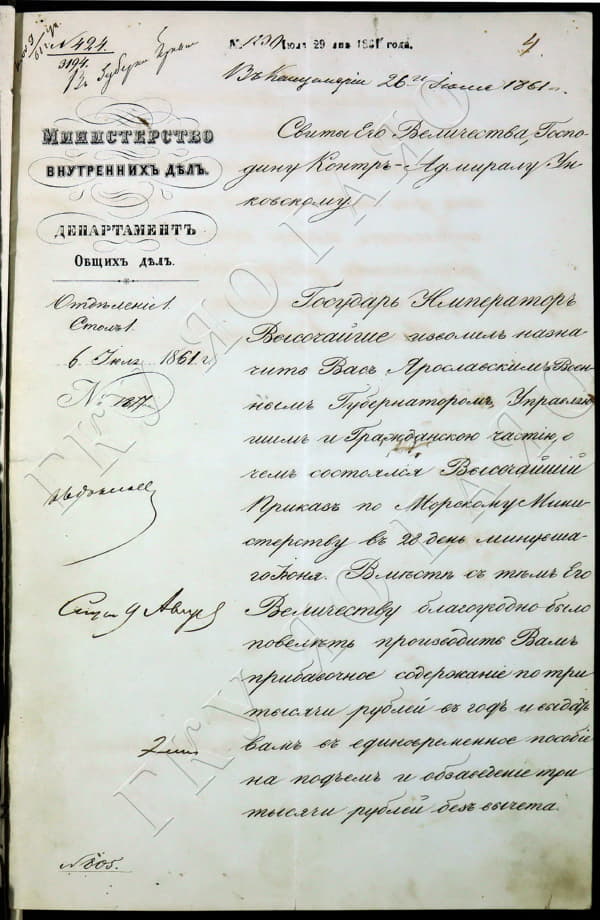 № 424.
3194.
№ Июля 29 дня 1861 года.
4
Въ Канцелярiи 26го Июля 1861 г.
МИНИСТЕРСТВО
ВНУТРЕННИХЪ ДѢЛЪ.
ДЕПАРТАМЕНТЪ
ОБЩИХЪ ДѢЛЪ.
Отдѣленiе 1.
Столъ 1.
6 Июля 1861 г.
№ 187
Свиты Его Величества, Госпо-
дину Контръ-Адмиралу Ун-
ковскому
Государь Императоръ
Высочайше изволилъ назна-
чить Васъ Ярославскимъ Воен-
нымъ Губернаторомъ, Управляю-
щимъ и Гражданскою частiю, о
чемъ состоялся Высочайшiй
Приказъ по Морскому Мини-
стерству въ 28 день минувша-
го Iюня. Вмѣстѣ съ тѣмъ Его
Величеству благоугодно было
повелѣть производить Вамъ
прибавочное содержанiе по три
тысячи рублей въ годъ и выдать
вамъ въ единовременное пособiе
на подъемъ и обзаведенiе три
тысячи рублей безъ вычета.
9 Августа
№ 805.
ГКУ ЯО ГАЯО